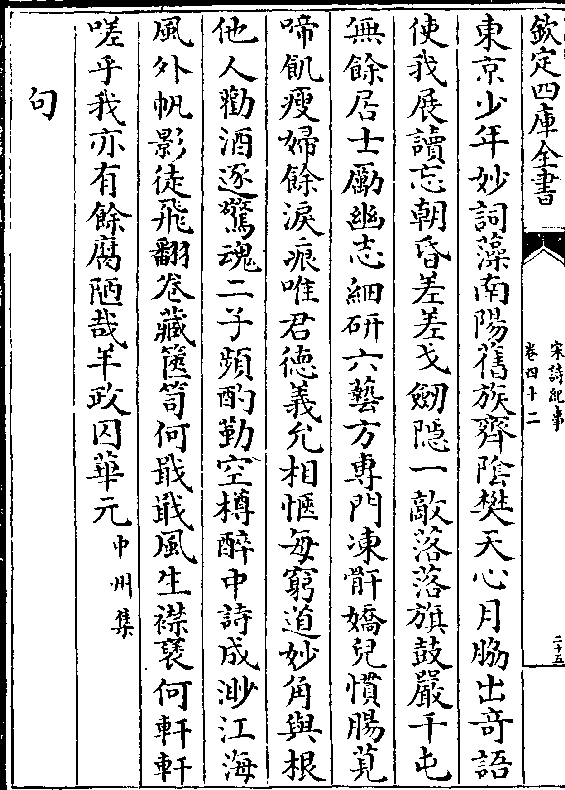 欽定四庫全書
宋詩紀事
卷四十二
二十五
東京少年妙詞藻南陽舊族齊隂樊天心月脇出竒語
使我展讀忘朝昏差差戈劒隠一敵落落旗鼓嚴千屯
無餘居士勵幽志細研六藝方専門凍骭嬌兒慣腸莧
啼飢瘦婦餘淚痕唯君徳義允相愜毎窮道妙角與根
他人勸酒逐驚魂二子頻酌勤空樽醉中詩成渺江海
風外帆影徒飛翻卷藏篋笥何戢戢風生襟袖何軒軒
嗟乎我亦有餘腐陋哉羊政囚華元中州集
句